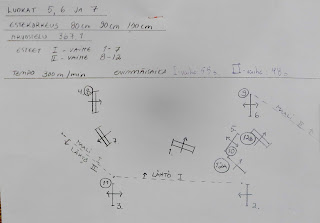 LUOKAT 5, 6 JA 7
ESTEKORKEUS 80cm 90cm 100cm
ARVOSTELU 367.1
ESTEET I - VAIHE 1-7
II - VAIHE 8-12
TEMPO 300m/min
I-vaihe
II-vaihe
4. 8
9
6.
7.
1.
5.
10
12B
12A
MAALI I
LÄHTÖ II
MAALI II
↑ LÄHTÖ I
11
3.
2.